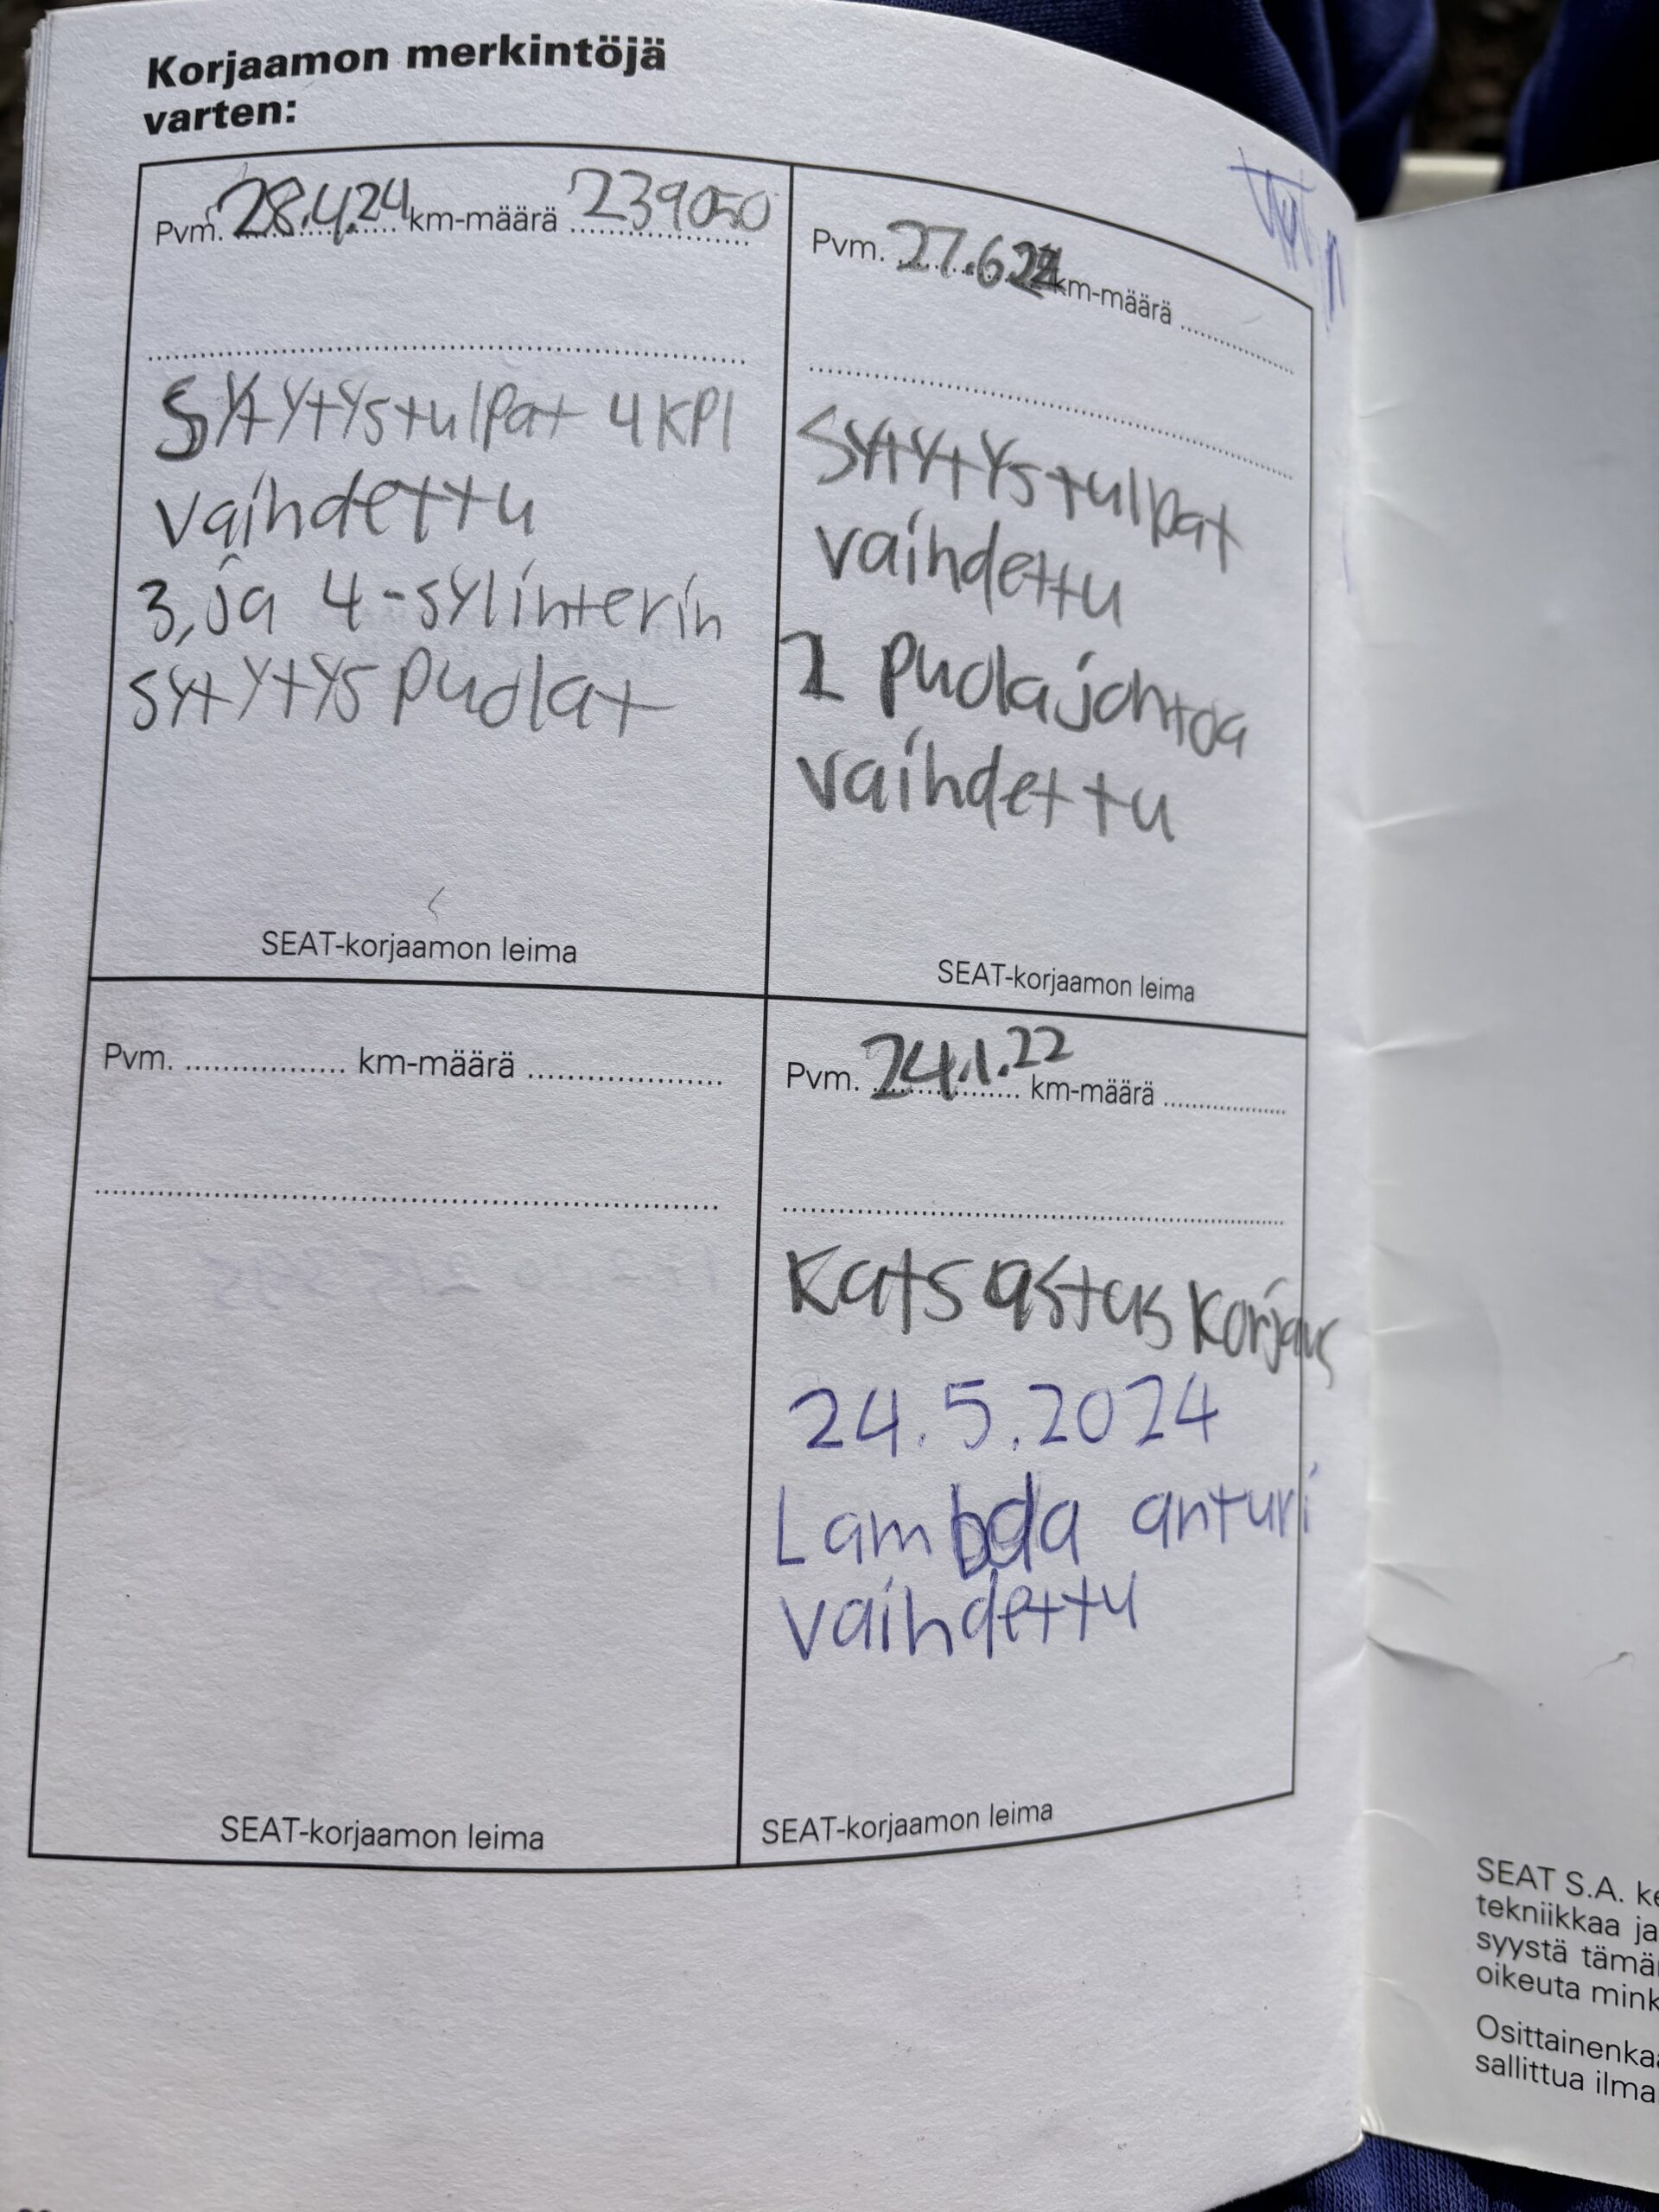 Korjaamon merkintöjä
varten:
Pvm. 28.4.24 km-määrä 239050
Sytytystulpat 4 KPl
vaihdettu
3, ja 4-sylinterin
sytytys puolat
SEAT-korjaamon leima
Pvm. 27.6 km-määrä
Sytytystulpat
vaihdettu
2 puolajohtoa
vaihdettu
SEAT-korjaamon leima
Pvm. km-määrä
SEAT-korjaamon leima
Pvm. 24.1.22 km-määrä
Katsastus korjaus
24.5.2024
Lambda anturi
vaihdettu
SEAT-korjaamon leima
SEAT S.A. ke
tekniikkaa ja
syystä tämä
oikeuta mink
Osittainenka
sallittua ilma